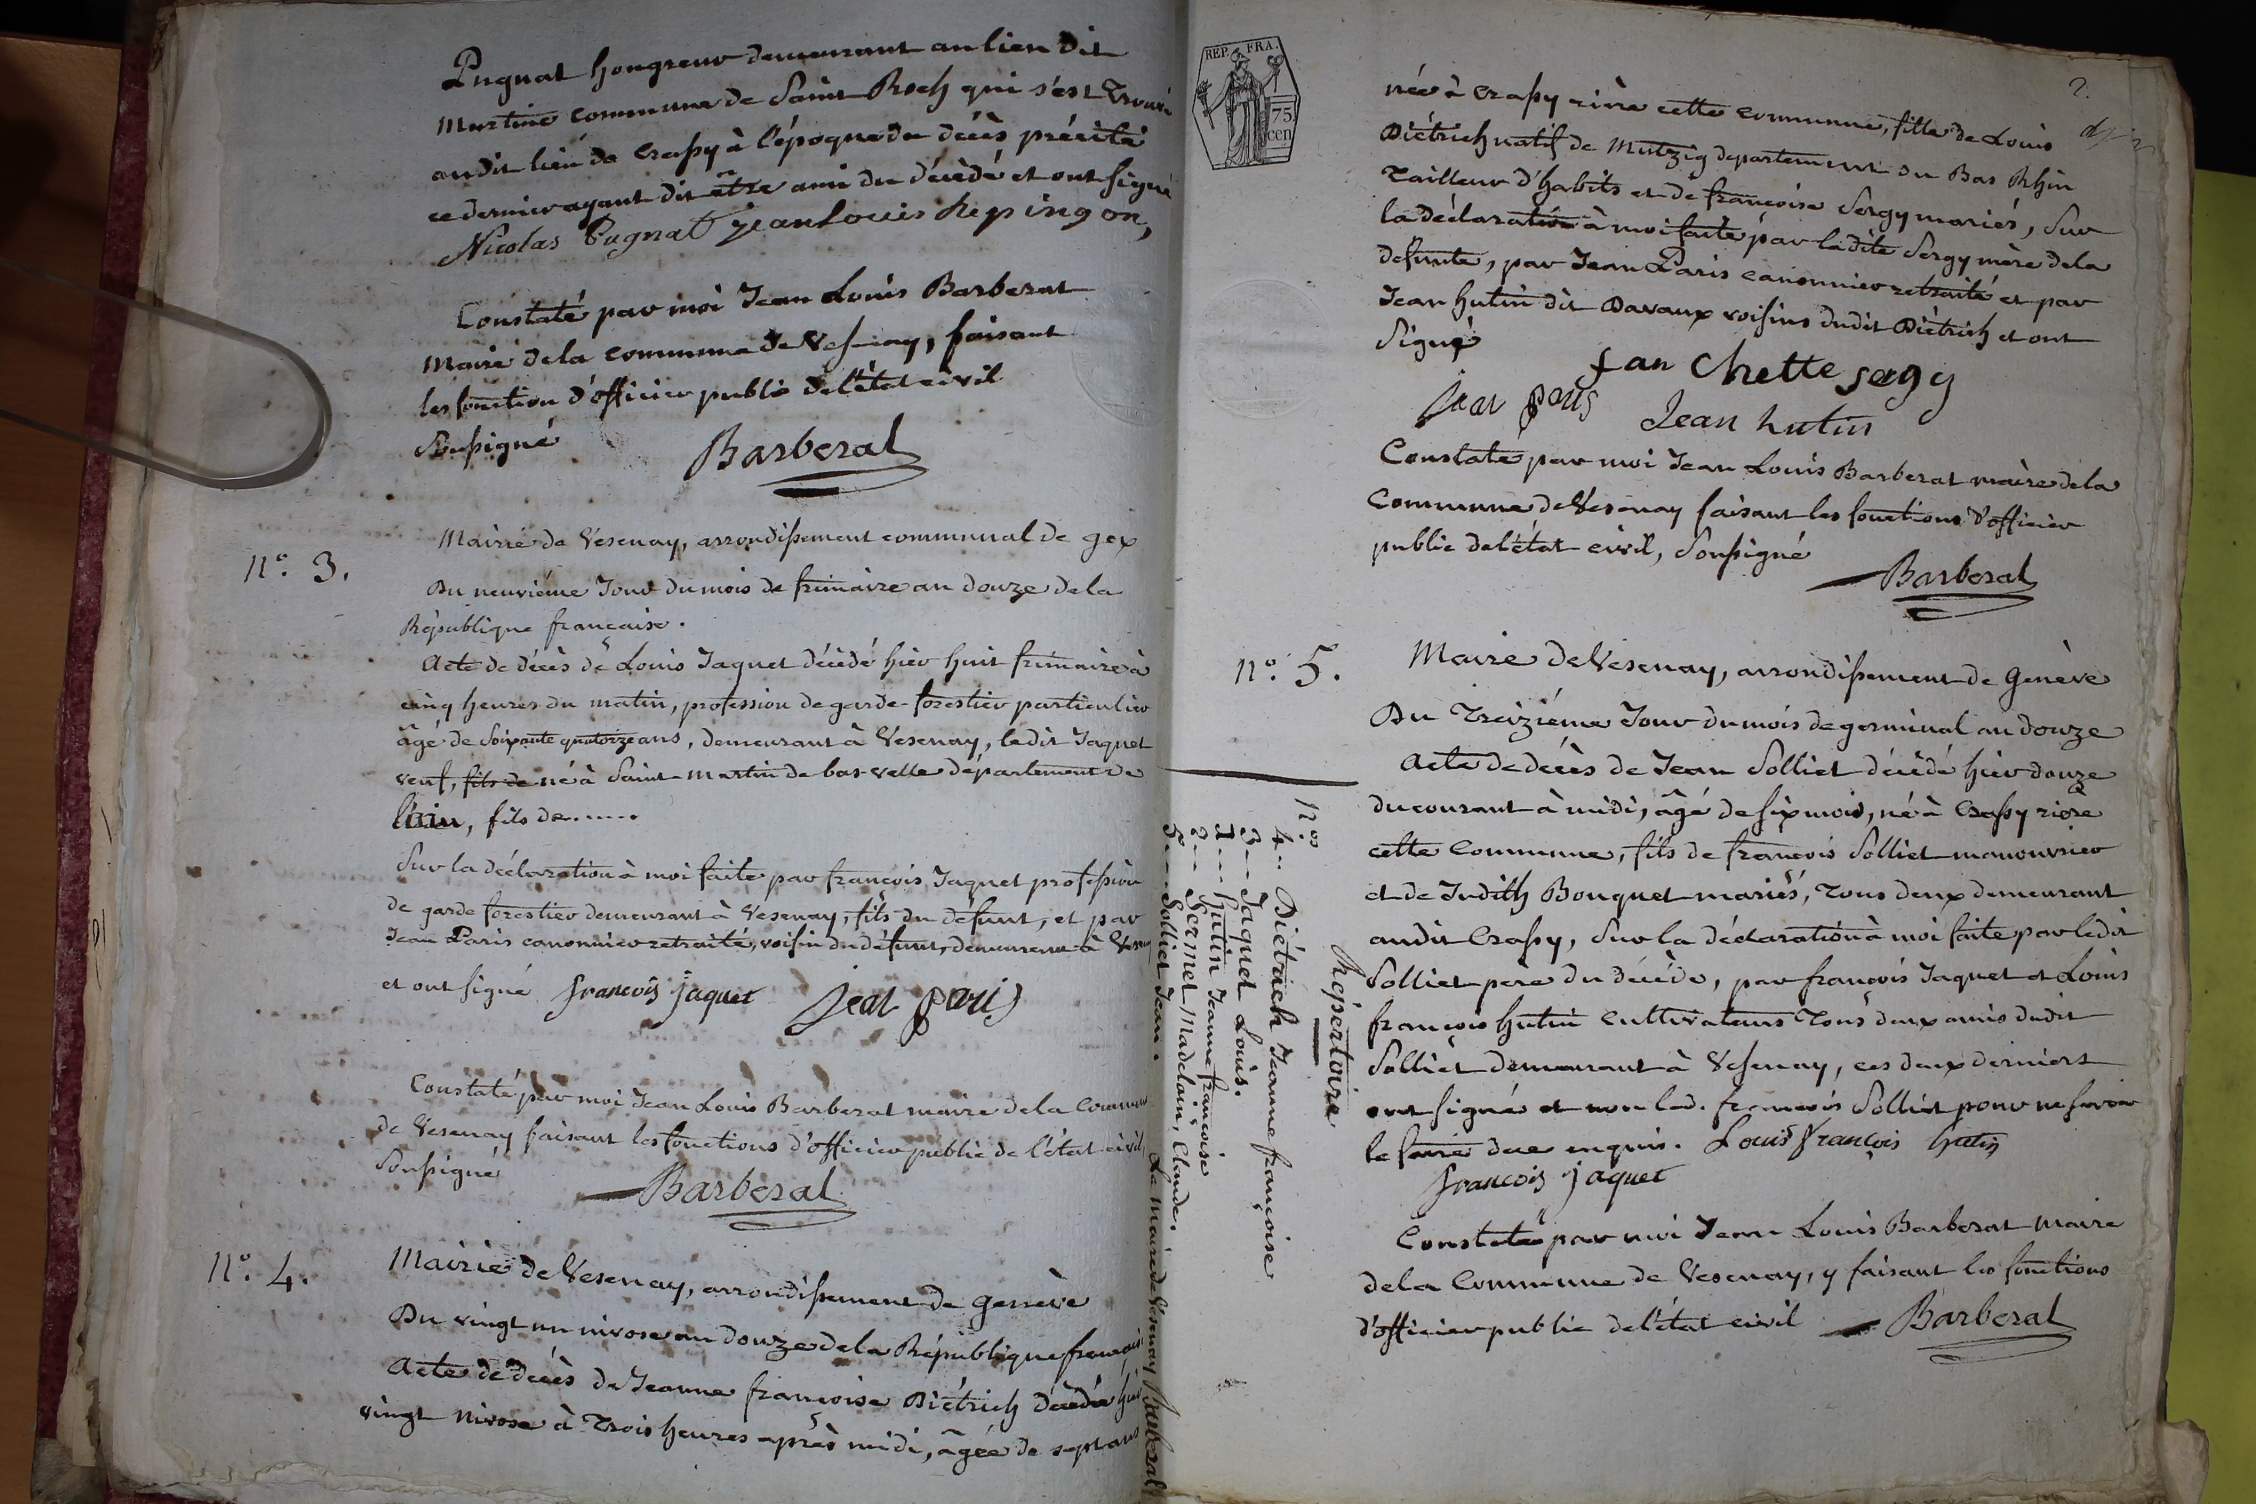 Pugnat hongreur demeurant au lieu dit
Martine commune de Saint Roch qui s'est trouvé
au dit lieu de Crassy à l'époque du décès précité
ce dernier ayant dit être ami du décèdé et ont signé
Nicolas Pugnat jean Louis Repingon,
Constaté par moi Jean Louis Barberat
Maire de la commune de Vesenay, faisant
les fonction d'officier public de l'état civil
Soussigné
Barberat
n.o 3.
Mairie de Vesenay, arrondissement communal de gex
Du neuvième Jour du mois de frimaire an douze de la
République française.
Acte de décès de Louis Jaquet décédé hier huit frimaire à
cinq heures du matin, profession de garde-forestier particulier
âgé de soixante quatorze ans, demeurant à Vesenay, le dit Jaquet
veuf, fils de né à Saint-Martin de bas-velle département de
l'ain, fils de......
Sur la déclaration à moi faite par françois Jaquet profession
de garde forestier demeurant à Vesenay, fils du défunt, et par
Jean Paris canonnier retraité, voisin du défunt, demeurant à Vesenay
et ont signé françois jaquet Jean paris
Constaté par moi Jean Louis Barberat maire de la Commune
de Vesenay faisant les fonctions d'officier public de l'état civil
Soussigné
Barberat
n.o 4.
Mairie de Vesenay, arrondissement de genève
Du vingt un nivose an douze de la République française
Acte de décès de Jeanne françoise Diétrich décédée hier
vingt Nivose à trois heures après midi, âgée de sept ans
REP. FRA.
75 cen
2.
née à Crassy rière cette commune, fille de Louis
Diétrich natif de Mutzig departement du Bas Rhin
tailleur d'habits et de françoise Sergy mariés, Sur
la déclaration à moi faite par ladite Sergy mère de la
defunte, par Jean Paris canonnier retraité et par
Jean hutin dit Davaux voisins dudit Diétrich et ont
Signé
fan Chette sergy
Jean paris Jean hutin
Constaté par moi Jean Louis Barberat maire de la
Commune de Vesenay faisant les fonctions d'officier
public de l'état civil, Soussigné
Barberat
n.o 5.
Maire de Vesenay, arrondissement de Genève
Du Treizième Jour du mois de germinal an douze
Acte de décès de Jean Solliet décédé hier douze
du courant à midi, âgé de six mois, né à Crassy riere
cette Commune, fils de françois Solliet manouvrier
et de Judith Bouquet mariés, tous deux demeurant
audit Crassy, Sur la déclaration à moi faite par ledit
Solliet pere du décède, par françois Jaquet et Louis
françois hutin cultivateurs tous deux amis dudit
Solliet demeurant à Vesenay, ces deux derniers
ont signés et non led. françois Solliet pour ne savoir
le faire due enquis. Louis françois hutin
françois jaquet
Constaté par moi Jean Louis Barberat Maire
de la Commune de Vesenay, y faisant les fonctions
d'officier public de l'état civil Barberat
Répertoire
n.os
4... Diétrich Jeanne françoise
3... Jaquet Louis.
1... hutin Jeanne françoise
2... Sermet Madelain, Claude.
5... Solliet Jean.
Le maire de Vesenay Barberat